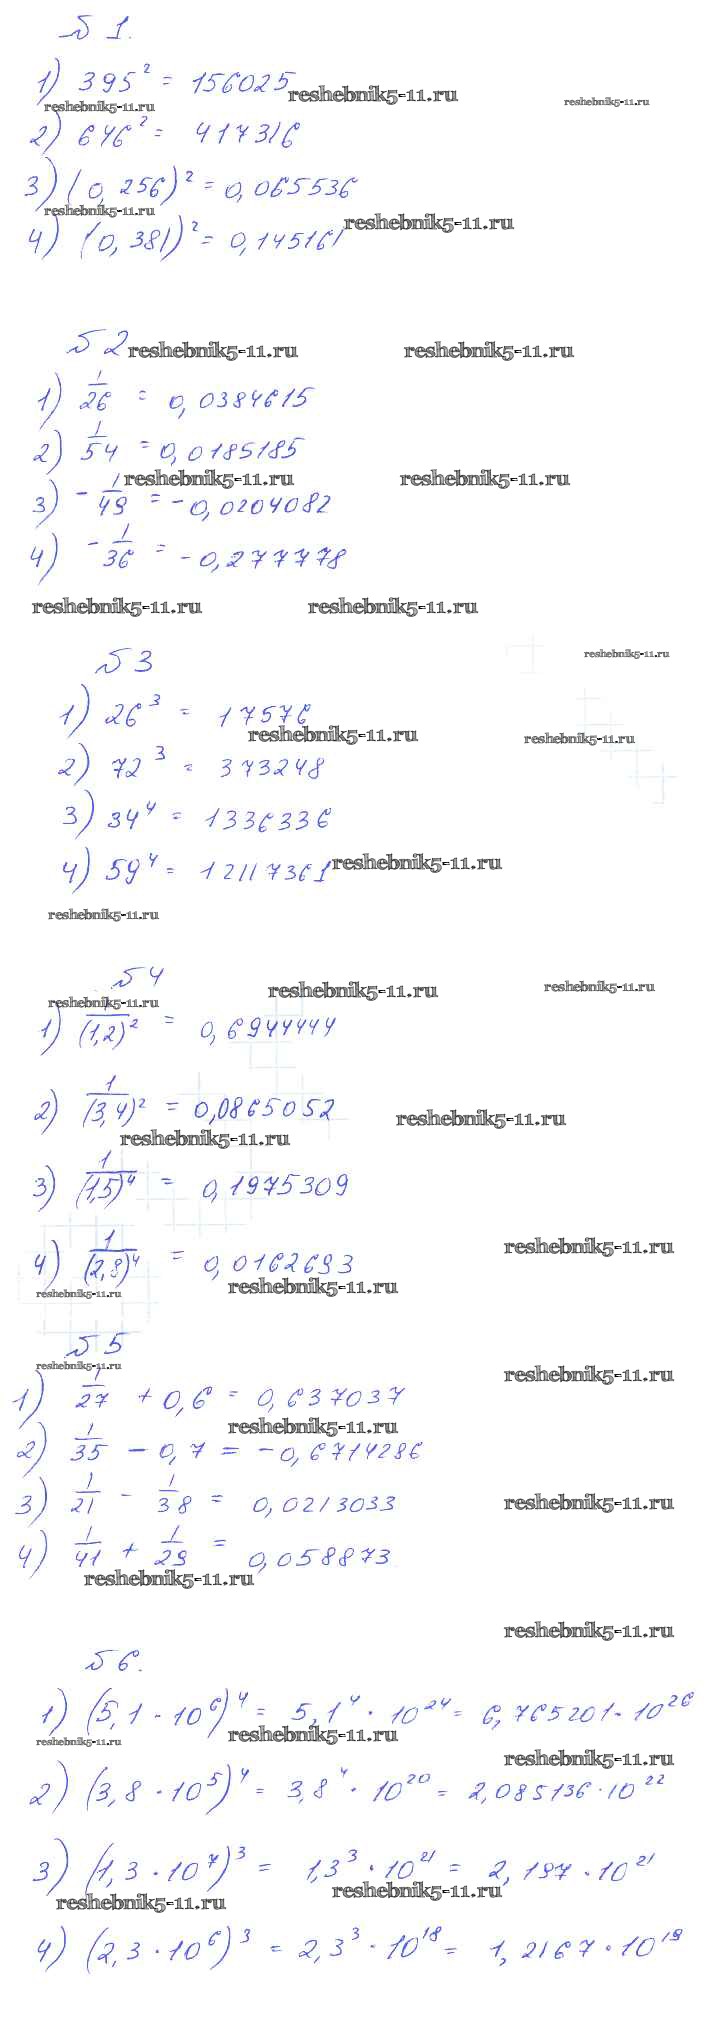 № 1.
1) 395² = 156025
reshebnik5-11.ru
reshebnik5-11.ru
reshebnik5-11.ru
2) 646² = 417316
3) (0,256)² = 0,065536
reshebnik5-11.ru
reshebnik5-11.ru
4) (0,381)² = 0,145161
№ 2
reshebnik5-11.ru
reshebnik5-11.ru
1) 1/26 = 0,0384615
2) 1/54 = 0,0185185
reshebnik5-11.ru
reshebnik5-11.ru
3) - 1/49 = -0,0204082
4) - 1/36 = -0,277778
reshebnik5-11.ru
reshebnik5-11.ru
№ 3
reshebnik5-11.ru
1) 26³ = 17576
reshebnik5-11.ru
reshebnik5-11.ru
2) 72³ = 373248
3) 34⁴ = 1336336
4) 59⁴ = 12117361
reshebnik5-11.ru
reshebnik5-11.ru
№ 4
reshebnik5-11.ru
reshebnik5-11.ru
reshebnik5-11.ru
1) 1/(1,2)² = 0,6944444
2) 1/(3,4)² = 0,0865052
reshebnik5-11.ru
reshebnik5-11.ru
3) 1/(1,5)⁴ = 0,1975309
4) 1/(2,8)⁴ = 0,0162693
reshebnik5-11.ru
reshebnik5-11.ru
reshebnik5-11.ru
№ 5
reshebnik5-11.ru
reshebnik5-11.ru
1) 1/27 + 0,6 = 0,637037
reshebnik5-11.ru
2) 1/35 - 0,7 = -0,6714286
3) 1/21 - 1/38 = 0,0213033
reshebnik5-11.ru
4) 1/41 + 1/29 = 0,058873
reshebnik5-11.ru
reshebnik5-11.ru
№ 6.
1) (5,1 · 10⁶)⁴ = 5,1⁴ · 10²⁴ = 6,765201 · 10²⁶
reshebnik5-11.ru
reshebnik5-11.ru
reshebnik5-11.ru
2) (3,8 · 10⁵)⁴ = 3,8⁴ · 10²⁰ = 2,085136 · 10²²
3) (1,3 · 10⁷)³ = 1,3³ · 10²¹ = 2,197 · 10²¹
reshebnik5-11.ru
reshebnik5-11.ru
4) (2,3 · 10⁶)³ = 2,3³ · 10¹⁸ = 1,2167 · 10¹⁹